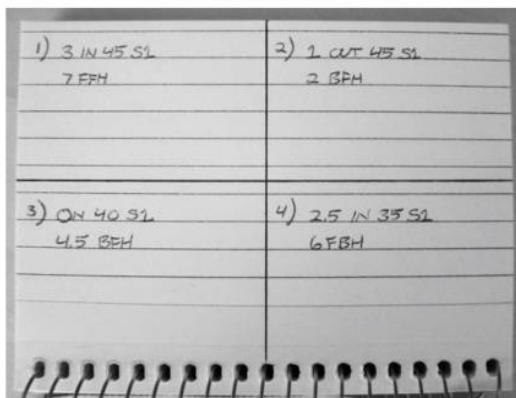 1) 3 IN 45 S1
7 FFH
2) 1 OUT 45 S1
2 BFH
3) ON 40 S1
4.5 BFH
4) 2.5 IN 35 S1
6 FBH